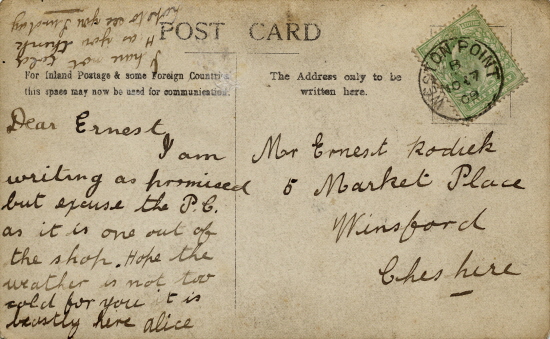 POST CARD
For Inland Postage & some Foreign Countries
this space may now be used for communication.
The Address only to be
written here.
WESTON POINT
Dear Ernest
I am
writing as promised
but excuse the P.C.
as it is one out of
the shop. Hope the
weather is not too
cold for you it is
beastly here Alice
I have not
H as you think
hope to see you Sunday
Mr Ernest Rodick
5 Market Place
Winsford
Cheshire